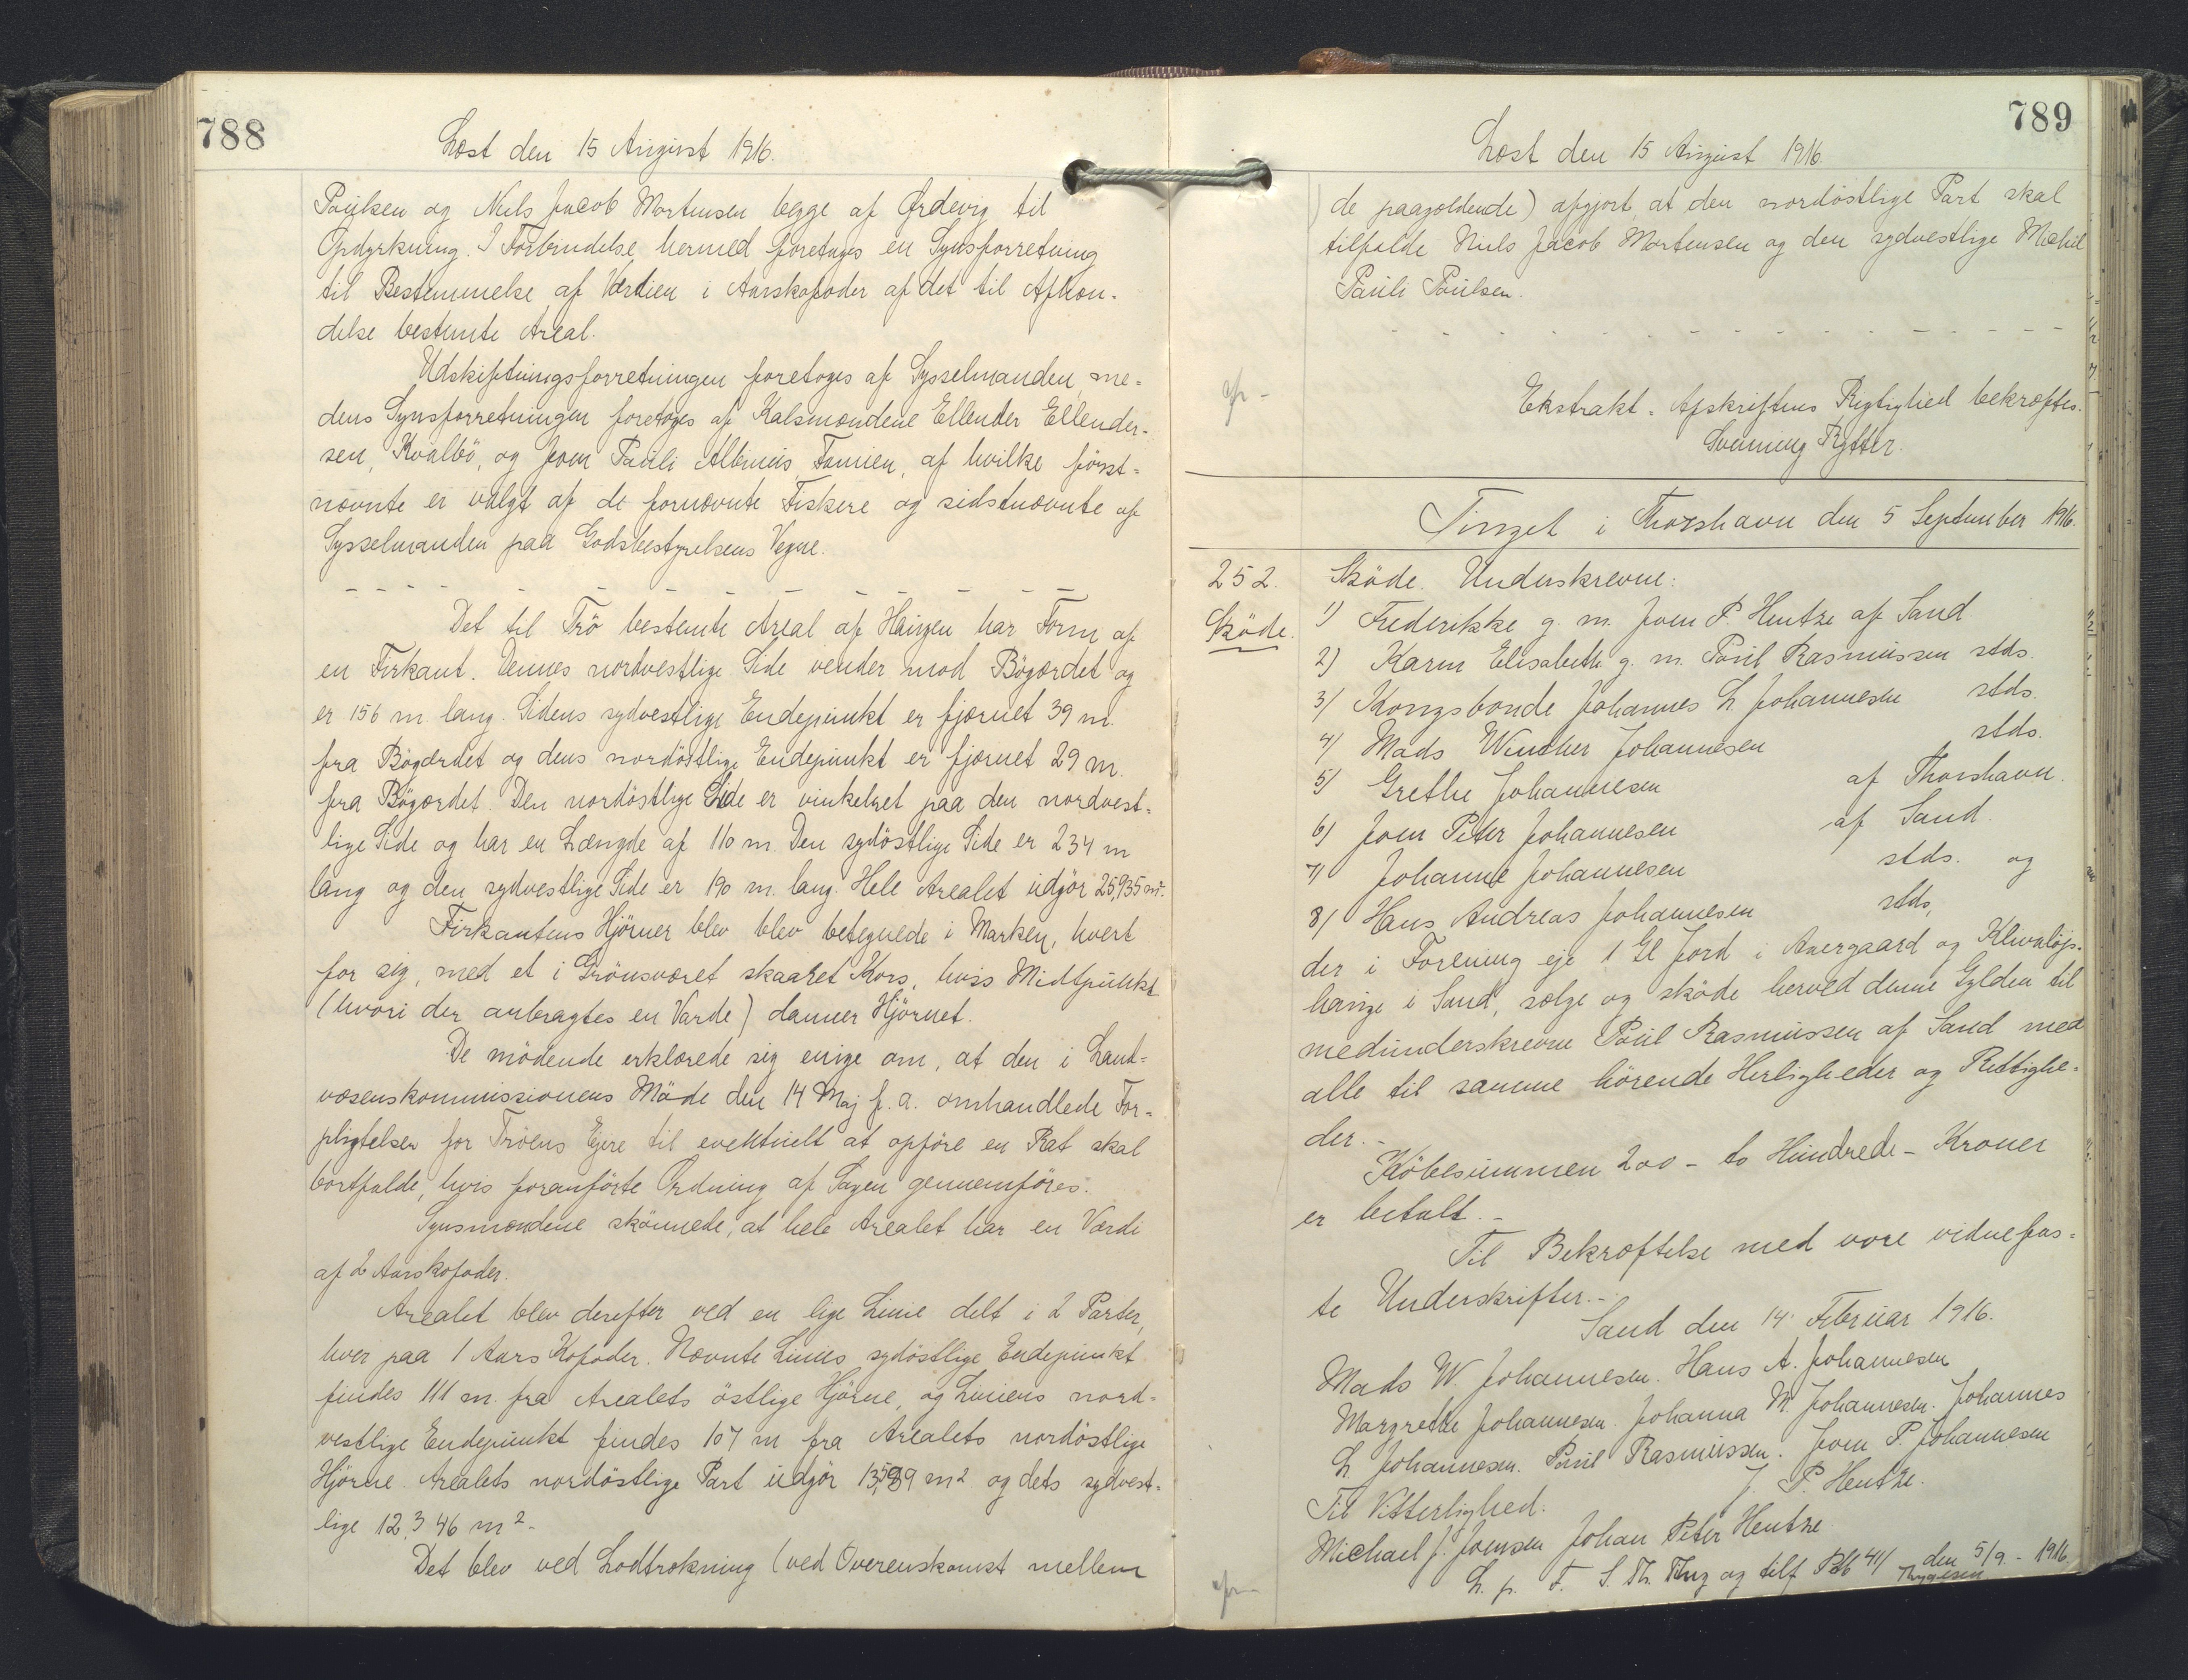 788
Læst den 15 August 1916.
Poulsen og Niels Jacob Mortensen begge af Ørdevig til
Opdyrkning. I Forbindelse hermed foretages en Synsforretning
til Bestemmelse af Værdien i Aarskofoder af det til Afhæn-
delse bestemte Areal.
Udskiftningsforretningen foretoges af Sysselmanden, me-
dens Synsforretningen foretoges af Kalsmændene Ellender Ellender-
sen, Kvalbö, og Joen Pauli Albinus, Famien, af hvilke först-
nævnte er valgt af de fornævnte Fiskere og sidstnævnte af
Sysselmanden paa Godsbestyrelsens Vegne.
- - - - - - - - - - - -
Det til Trö bestemte Areal af Haugen har Form af
en Firkant. Dennes nordvestlige Side vender mod Bögærdet og
er 156 m lang. Sidens sydvestlige Endepunkt er fjærnet 39 m.
fra Bögærdet og dens nordöstlige Endepunkt er fjærnet 29 m.
fra Bögærdet. Den nordöstlige Side er vinkelret paa den nordvest-
lige Side og har en Længde af 110 m. Den sydöstlige Side er 234 m
lang og den sydvestlige Side er 190 m. lang. Hele Arealet udgör 25,935 m².
Firkantens Hjörner blev blev betegnede i Marken, hvert
for sig, med et i Grönsværet skaaret Kors, hviss Midtpunkt
(hvori der anbragtes en Varde) danner Hjörnet.
De mödende erklærede sig enige om, at den i Land-
væsenskommissionens Möde den 14 Maj f. a. omhandlede For-
pligtelse for Tröens Ejere til eventuelt at opföre en Ræt skal
bortfalde, hvis foranförte Ordning af Sagen gennemföres.
Synsmændene skönnede, at hele Arealet har en Værdi
af 2 Aarskofoder.
Arealet blev derefter ved en lige Linie delt i 2 Parter,
hver paa 1 Aars Kofoder. Nævnte Linies sydöstlige Endepunkt
findes 111 m. fra Arealets östlige Hjörne, og Liniens nord-
vestlige Endepunkt findes 107 m fra Arealets nordöstlige
Hjörne. Arealets nordöstlige Part udgör 13,589 m² og dets sydvest-
lige 12,346 m².
Det blev ved Lodtrækning (ved Overenskomst mellem
789
Læst den 15 August 1916.
de paagældende) afgjort, at den nordöstlige Part skal
tilfalde Niels Jacob Mortensen og den sydvestlige Michiel
Pauli Poulsen.
- - - - - - - - - - - - - - -
Ekstrakt-Afskriftens Rigtighed bekræftes.
Svenning Rytter.
Tinget i Thorshavn den 5 September 1916.
252. Sköde. Underskrevne:
Sköde.
1) Frederikke g. m. Joen P. Hentze af Sand
2) Karin Elisabeth g. m. Poul Rasmussen stds.
3) Kongsbonde Johannes L. Johannesen stds.
4) Mads Winther Johannesen stds.
5) Grethe Johannesen af Thorshavn.
6) Joen Peter Johannesen af Sand.
7) Johanne Johannesen stds. og
8) Hans Andreas Johannesen stds,
der i Forening eje 1 Gl Jord i Auergaard og Klivalöjs-
hauge i Sand, sælge og sköde herved denne Gylden til
medunderskrevne Poul Rasmussen af Sand med
alle til samme hörende Herligheder og Rettighe-
der.-
Köbesummen 200 - to Hundrede - Kroner
er betalt.-
Til Bekræftelse med vore vidnefas-
te Underskrifter.-
Sand den 14 Februar 1916.
Mads W. Johannesen. Hans A. Johannesen
Margrethe Johannesen. Johanna M. Johannesen. Johannes
L. Johannesen. Poul Rasmussen. Joen P. Johannesen
J. P. Hentze.
Til Vitterlighed.
Michael J. Joensen Johan Peter Hentze.
L. p. F. S. Th. Ting og tilf Pb 41/ den 5/9 - 1916
Thygesen